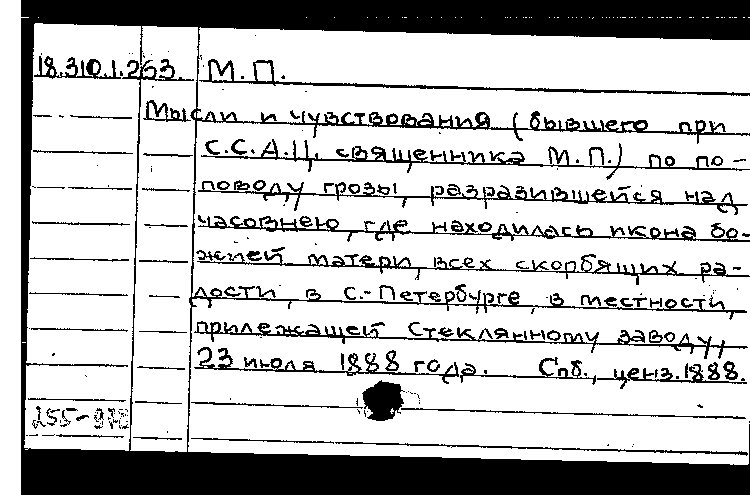 18.310.1.263. М.П.
Мысли и чувствования (бывшего при
С.С.А.Ц. священника М.П.) по по-
поводу грозы, разразившейся над
часовнею, где находилась икона бо-
жией матери, всех скорбящих ра-
дости, в С.-Петербурге, в местности,
прилежащей Стеклянному заводу,
23 июля 1888 года. Спб., ценз. 1888.